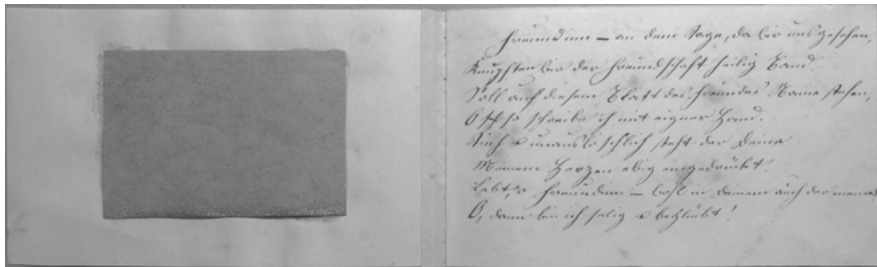 Freundinn – an dem Tage, da wir uns gesehen,
Knüpften wir der Freundschaft heilig Band.
Soll auf diesem Blatt des Freundes Name stehen,
O so schreibe ich mit eigner Hand.
Tief u unauslöschlich steht der Deine
Meinem Herzen ewig eingedrückt!
Lebt, o Freundinn – wohl in Deinem auch der meine,
O, dann bin ich selig u beglückt!